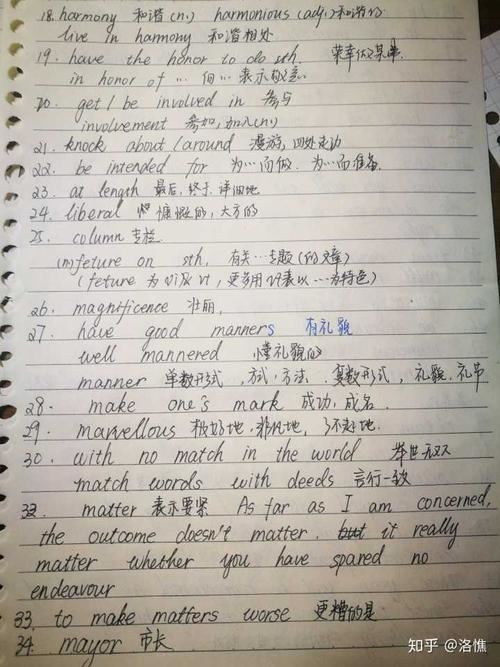 18. harmony 和谐 (n.) harmonious (adj.) 和谐的
live in harmony 和谐相处
19. have the honor to do sth. 荣幸做某事.
in honor of … 向… 表示敬意
20. get / be involved in 参与
involvement 参加,加入(n)
21. knock about / around 漫游, 四处走动
22. be intended for 为…而做. 为…而准备.
23. at length 最后, 终于, 详细地
24. liberal 慷慨的, 大方的
25. column 专栏
(n) feture on sth. 有关…专题(的文章)
( feture 为 vi及 vt, 更多用 vt表以…为特色)
26. magnificence 壮丽.
27. have good manners 有礼貌
well mannered 懂礼貌的
manner 单数形式, 方式,方法. 复数形式, 礼貌, 礼节
28. make one's mark 成功,成名.
29. marvellous 极好地. 非凡地, 了不起地.
30. with no match in the world 举世无双
match words with deeds 言行一致
32. matter 表示要紧 As far as I am concerned,
the outcome doesn't matter. but it really
matter whether you have spared no
endeavour
33. to make matters worse 更糟的是
34. mayor 市长
知乎 @洛憔